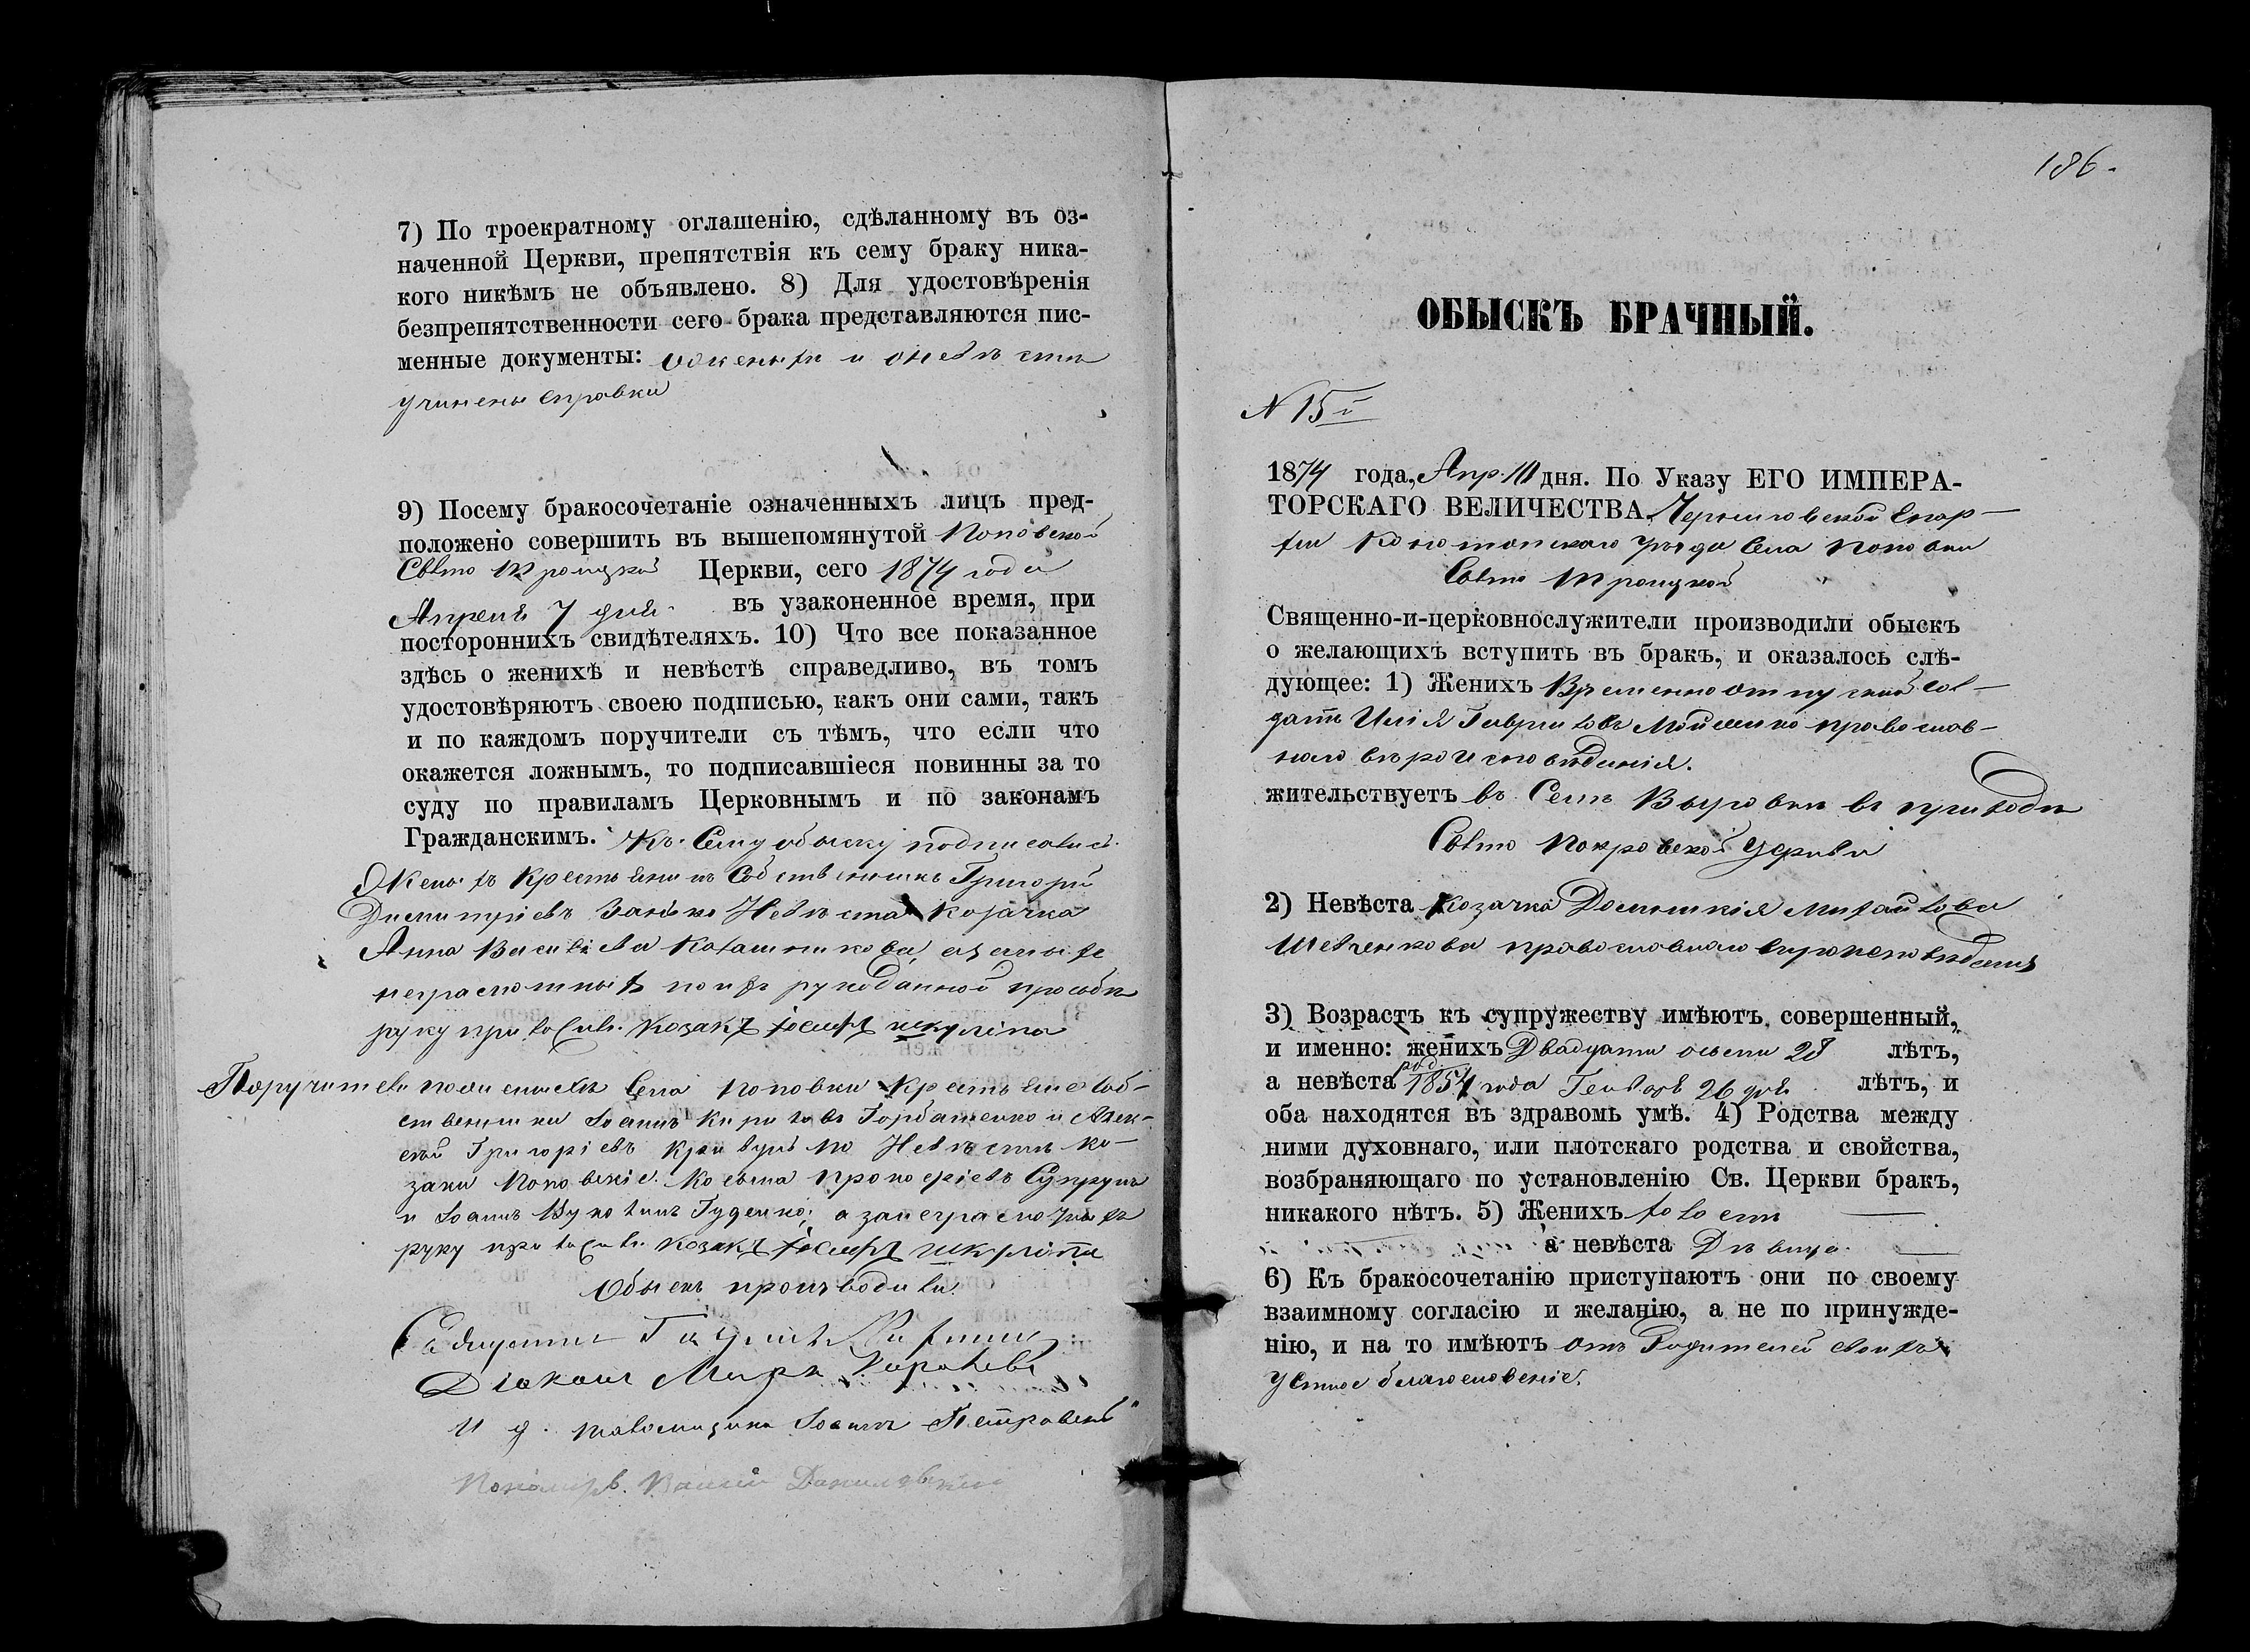 7) По троекратному оглашенію, сдѣланному въ оз-
наченной Церкви, препятствія къ сему браку ника-
кого никѣмъ не объявлено. 8) Для удостовѣренія
безпрепятственности сего брака представляются пис-
менные документы: Ожених и оневѣстѣ
учинены справки
9) Посему бракосочетаніе означенныхъ лицъ пред-
положено совершить въ вышепомянутой Поповской
Свято Троицкой Церкви, сего 1874 года
Апреля 7 дня въ узаконенное время, при
постороннихъ свидѣтеляхъ. 10) Что все показанное
здѣсь о женихѣ и невѣстѣ справедливо, въ томъ
удостовѣряютъ своею подписью, какъ они сами, такъ
и по каждомъ поручители съ тѣмъ, что если что
окажется ложнымъ, то подписавшіеся повинны за то
суду по правиламъ Церковнымъ и по законамъ
Гражданскимъ. Къ Сему обыску подписались
Женихъ Крестьянинъ Собственникъ Григорій
Димитріевъ Занько Невѣста Козачка
Анна Василіева Калашникова, а за них
неграмотныхъ по их рукоданной прозбѣ
руку приложилъ Козакъ Іосифъ Шкуліпа
Поручители по женихѣ Села Поповки Крестьяне Соб-
ственники Іоаннъ Кириловъ Горбатенко и Алек-
сѣй Григоріевъ по Невѣстѣ ко-
заки Поповскіе Косьма Прокофіевъ Супрунъ
и Іоаннъ Вуколинъ Гуденко; а за неграмотныхъ
руку приложилъ Козакъ Іосифъ Шкуліпа
Обыскъ производили
Священникъ
Діаконъ Маркъ
И д. псаломщика Іоаннъ Петровскій
Пономарь Данилевскій
186.
ОБЫСКЪ БРАЧНЫЙ.
N 15й
1874 года, Апр. дня. По Указу ЕГО ИМПЕРА-
ТОРСКАГО ВЕЛИЧЕСТВА, Черниговской Епар-
хіи Конотопскаго уѣзда Села Поповки
Свято Троицкой
Священно-и-церковнослужители производили обыскъ
о желающихъ вступить въ бракъ, и оказалось слѣ-
дующее: 1) Женихъ Временноотпускной сол-
датъ Илія Гавриловъ Мойсенко православ-
наго вѣроисповѣданія.
жительствуетъ въ Селѣ Выровкѣ въ приходѣ
Свято Покровской Церкви
2) Невѣста Козачка Домникія Михайлова
Шевченкова православнаго вѣроисповѣданія
3) Возрастъ къ супружеству имѣютъ совершенный,
и именно: женихъ Двадцати осьми 28 лѣтъ,
а невѣста род. 1854 года Генваря 26 дня лѣтъ, и
оба находятся въ здравомъ умѣ. 4) Родства между
ними духовнаго, или плотскаго родства и свойства,
возбраняющаго по установленію Св. Церкви бракъ,
никакого нѣтъ. 5) Женихъ холостъ
а невѣста Дѣвица
6) Къ бракосочетанію приступаютъ они по своему
взаимному согласію и желанію, а не по принужде-
нію, и на то имѣютъ отъ Родителей своихъ
устное благословеніе.